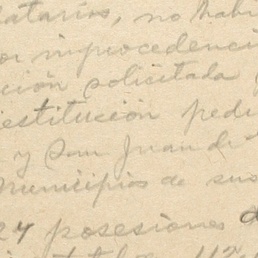 latarios, no habi
or improcedenci
ción solicitada
estitución pedi
y San Juan de
Municipios de sus
24 posesiones d